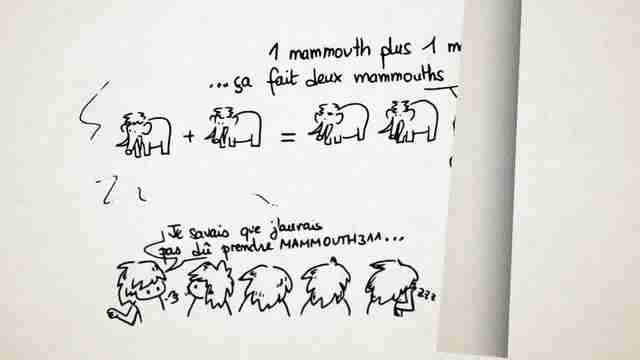 1 mammouth plus 1 m
...ça fait deux mammouths
+ =
Je savais que j'aurais
pas dû prendre MAMMOUTH311...
zzz